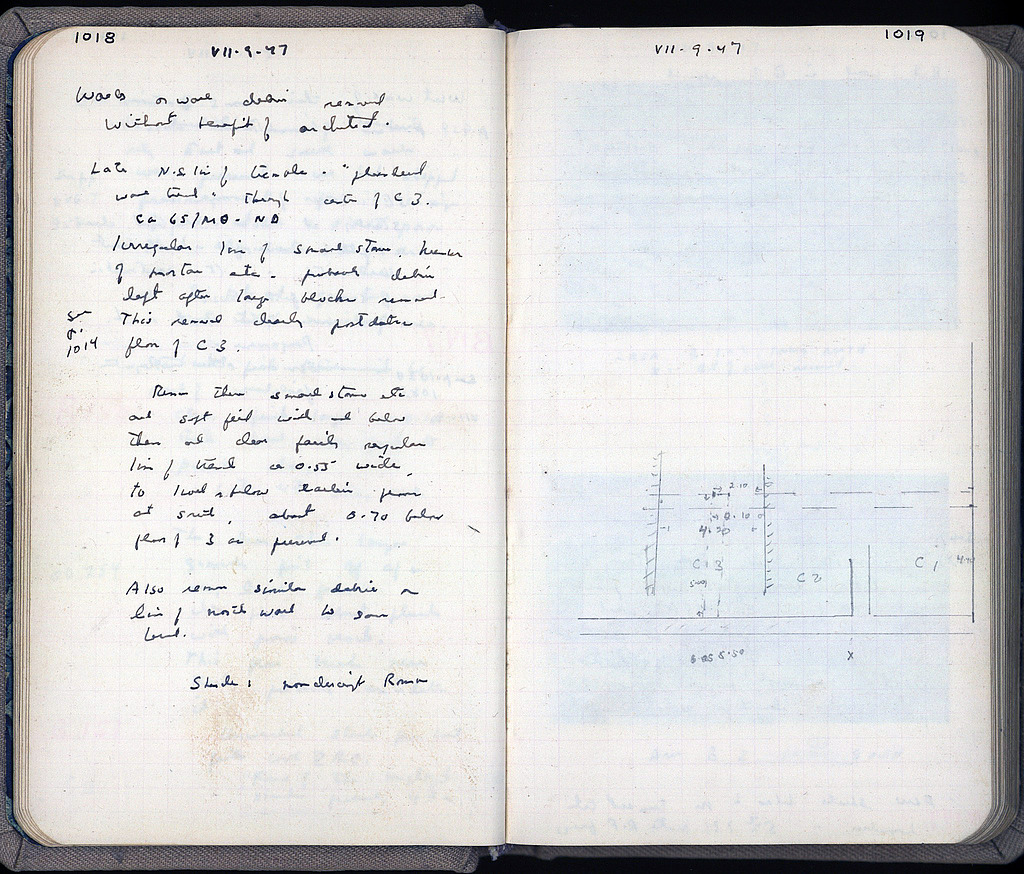 1018
VII-9-47
Walls or wall debris removed
without benefit of architect.
Late N-S line of "plundered
wall trench" through center of C 3.
Ca 65/ΜΘ-ΝΔ
Irregular line of small stones,
of mortar etc. probably debris
left after large blocks removed.
See
p.
1014
This removal clearly postdates
floor of C 3.
Remove these small stones etc
and soft fill with and below
them and clear fairly regular
line of trench ca 0.55 wide,
to level of below
at south, about 0.70 below
floor of 3 as preserved.
Also remove similar debris on
line of north wall to same
level.
Sherds: nondescript Roman
1019
VII-9-47
2.10
0.10
4.50
C 3
5.00
C 2
C 1
4.40
5.50
X